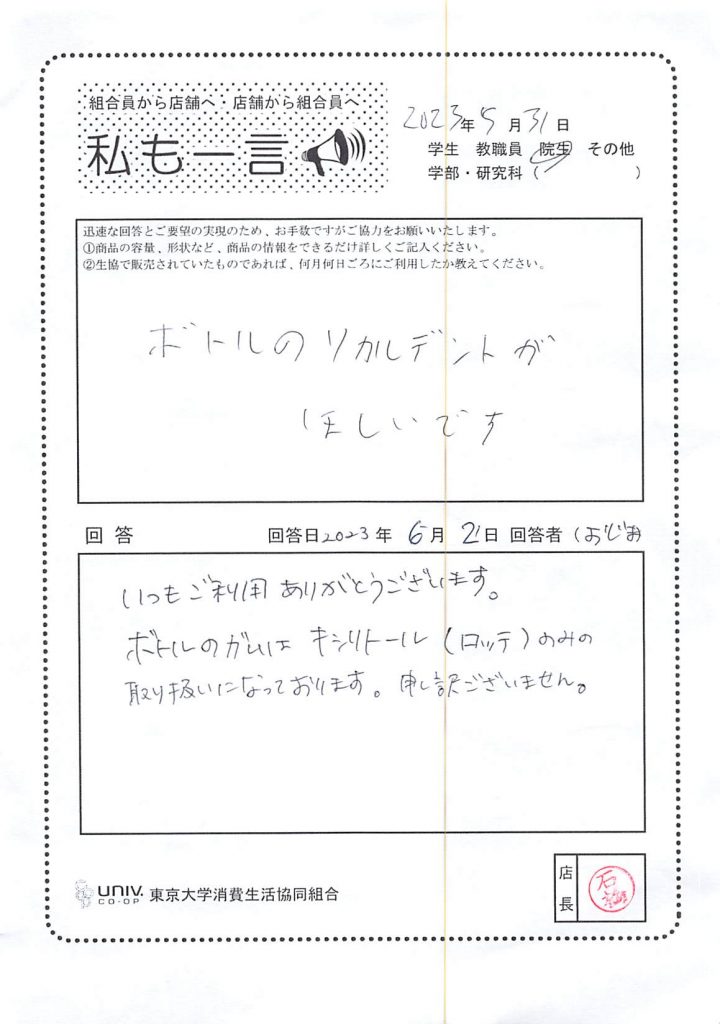 組合員から店舗へ・店舗から組合員へ
私も一言
2023年5月31日
学生 教職員 院生 その他
学部・研究科( )
迅速な回答とご要望の実現のため、お手数ですがご協力をお願いいたします。
①商品の容量、形状など、商品の情報をできるだけ詳しくご記入ください。
②生協で販売されていたものであれば、何月何日ごろにご利用したか教えてください。
ボトルのリカルデントが
ほしいです
回答 回答日2023年 6月 2日 回答者(
いつもご利用ありがとうございます。
ボトルのガムは キシリトール(ロッテ)のみの
取り扱いになっております。申し訳ございません。
UNIV. CO-OP 東京大学消費生活協同組合
店長